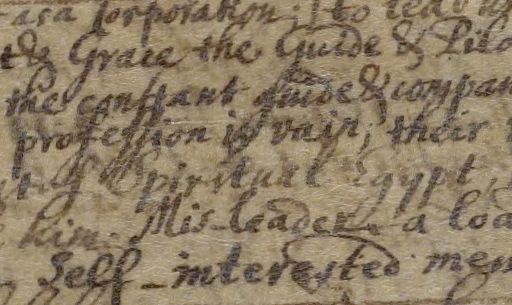 as a Corporation; to lead
Grace the Guide & Pilo
the constant guide & compan
profession is vain; their
Spiritual Egypt,
him. Mis-leader, a loa
Self-interested men